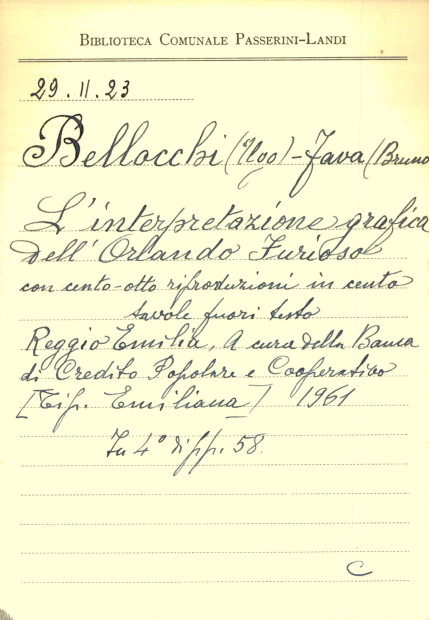 BIBLIOTECA COMUNALE PASSERINI-LANDI
29.II.23
Bellocchi (Ugo) - Fava (Bruno
L'interpretazione grafica
dell'Orlando Furioso
con cento-otto riproduzioni in cento
tavole fuori testo
Reggio Emilia, A cura della Banca
di Credito Popolare e Cooperativo
[Tip. Emiliana] 1961
In 4° di pp. 58.
C